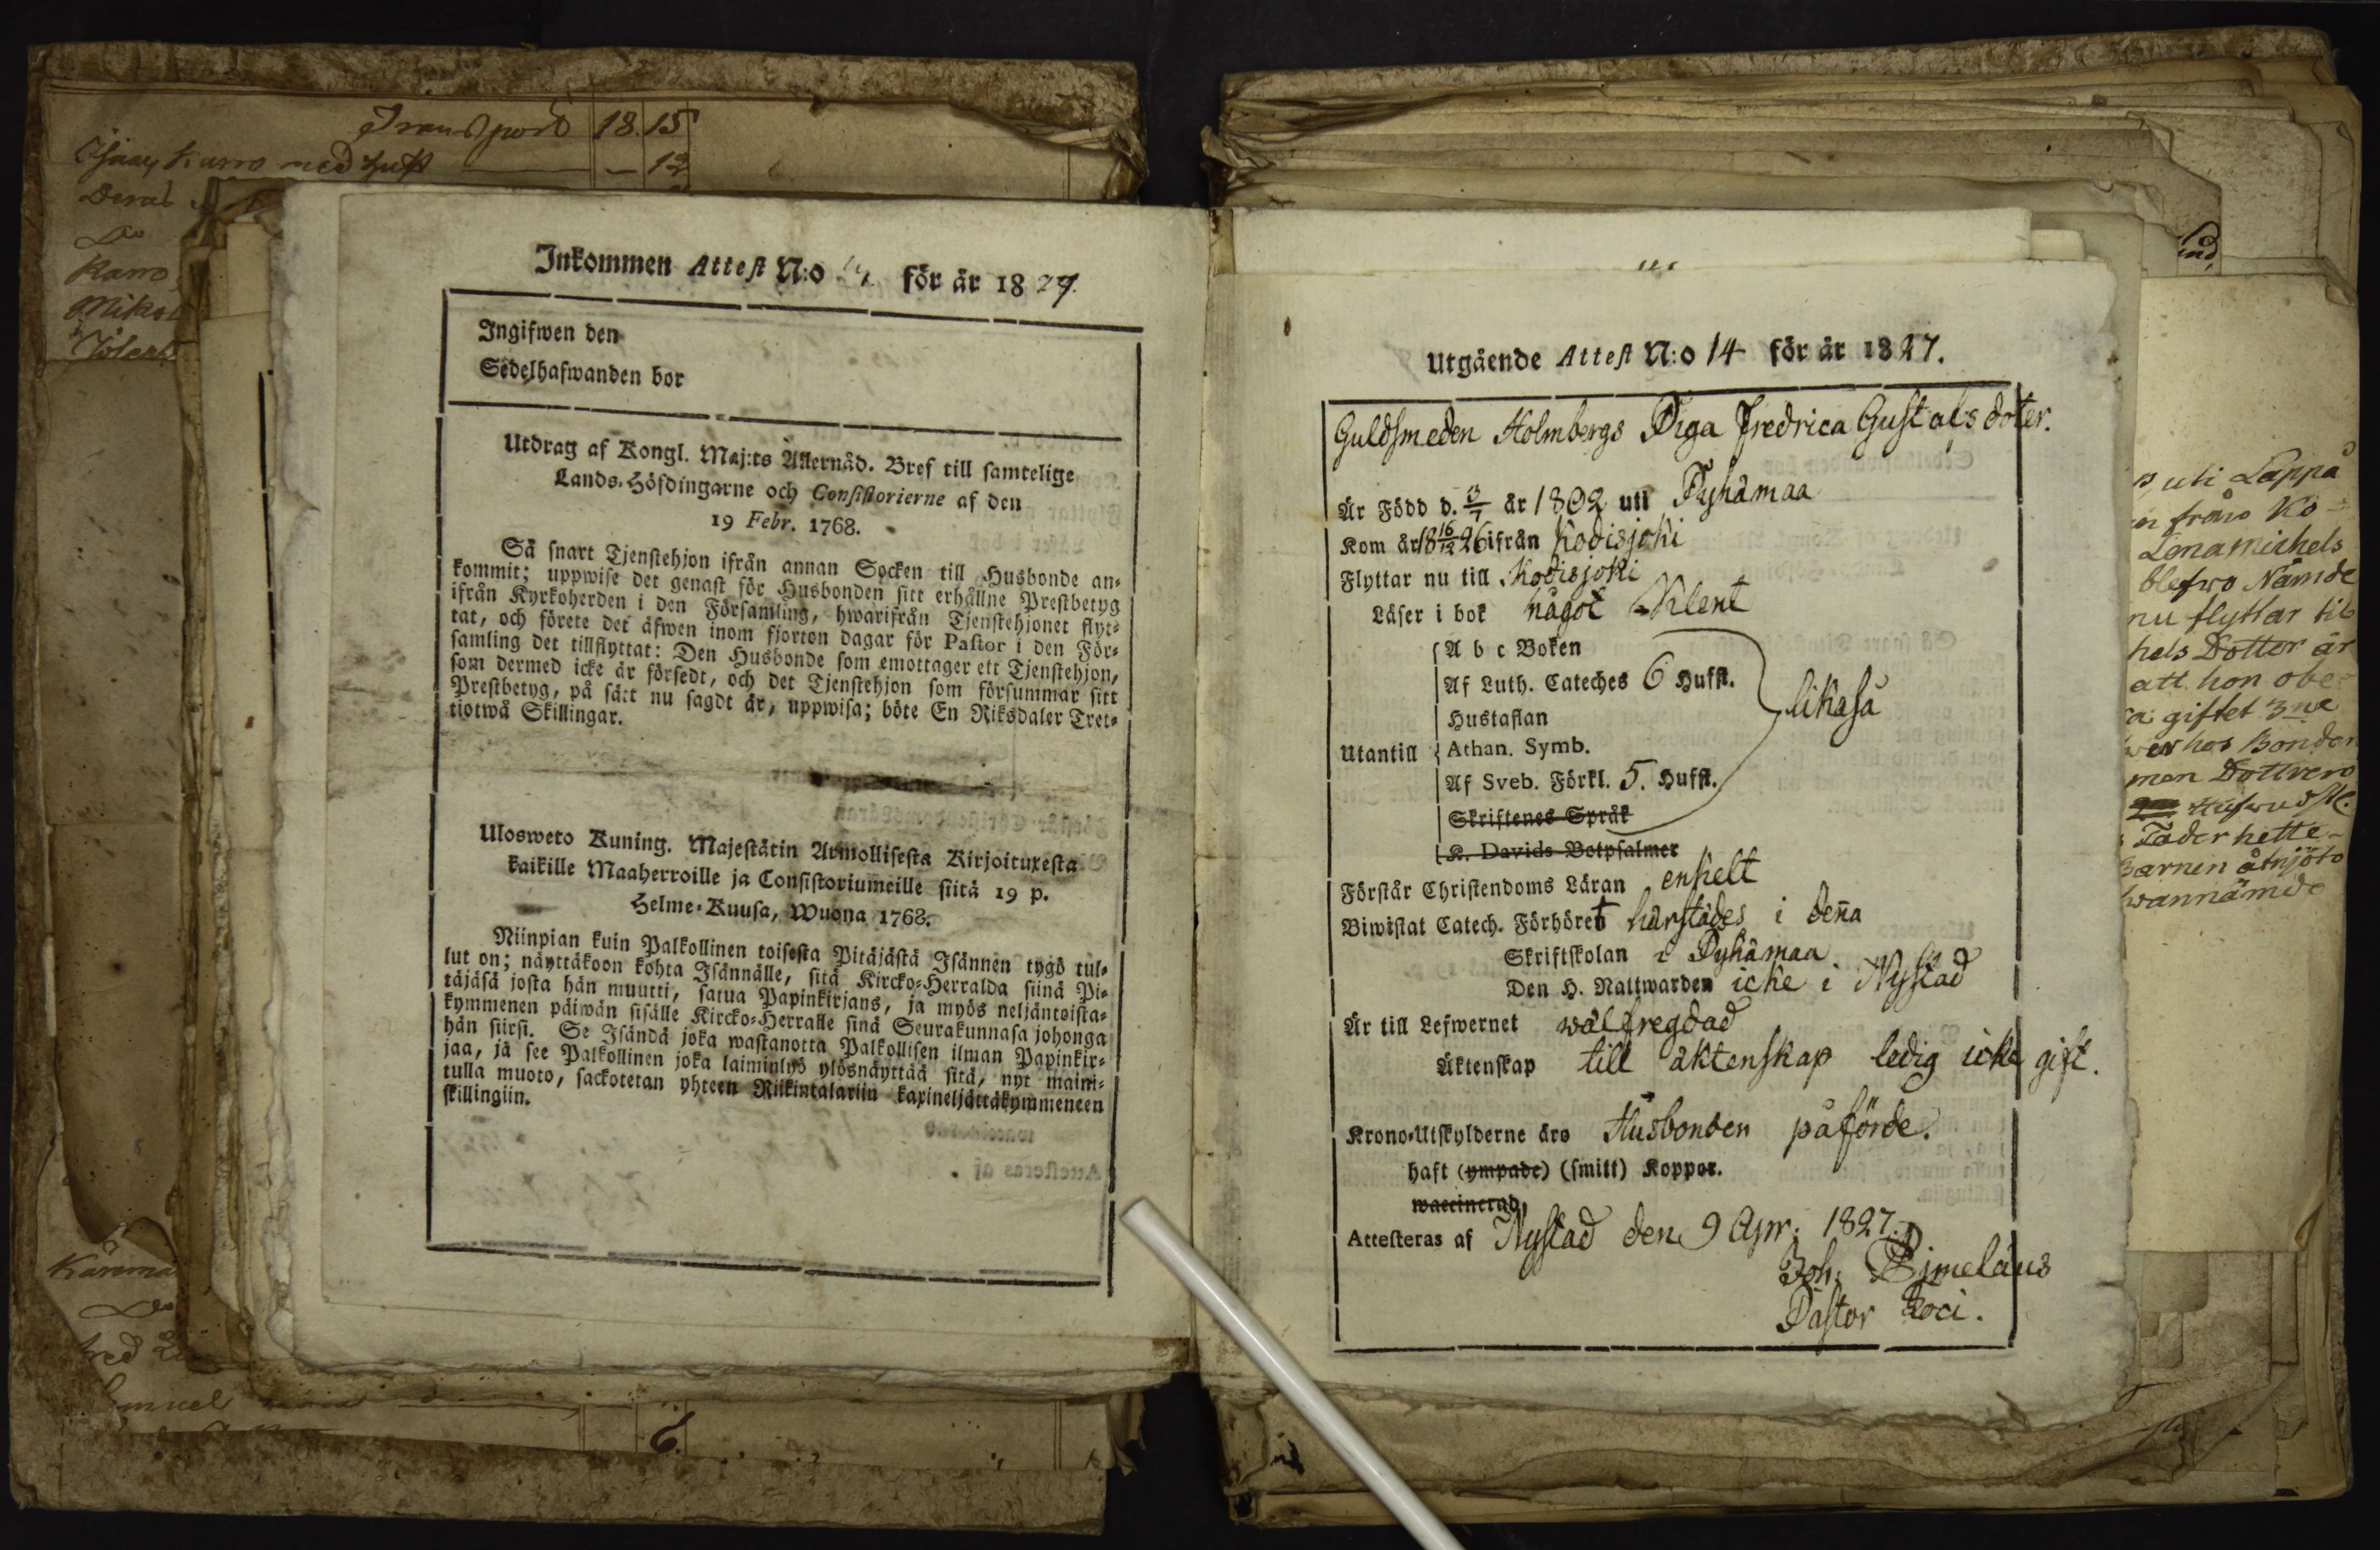 Transport 18. 15
med — 12
Karro
Inkommen Attest N:o för år 1827.
Ingifwen den
Sedelhafwanden bor
Utdrag af Kongl. Maj:ts Allernåd. Bref till samtelige
Lands-Höfdingarne och Consistorierne af den
19 Febr. 1768.
Så snart Tjenstehjon ifrån annan Socken till Husbonde an-
kommit; uppwise det genast för Husbonden sitt erhållne Prestbetyg
ifrån Kyrkoherden i den Församling, hwarifrån Tjenstehjonet flyt-
tat, och förete det äfwen inom fjorton dagar för Pastor i den För-
samling det tillflyttat: Den Husbonde som emottager ett Tjenstehjon,
som dermed icke är försedt, och det Tjenstehjon som försummar sitt
Prestbetyg, på sätt nu sagdt är, uppwisa; böte En Riksdaler Tret-
tiotwå Skillingar.
Ulosweto Kuning. Majestätin Armollisesta Kirjoituxesta
kaikille Maaherroille ja Consistoriumeille siitä 19 p.
Helme-Kuusa, Wuona 1768.
Niinpian kuin Palkollinen toisesta Pitäjästä Isännen tygö tul-
lut on; näyttäkoon kohta Isännälle, sitä Kircko-Herralda siinä Pi-
täjäsä josta hän muutti, satua Papinkirjans, ja myös neljäntoista-
kymmenen päiwän sisälle Kircko-Herralle sinä Seurakunnasa johonga
hän siirsi. Se Isändä joka wastanotta Palkollisen ilman Papinkir-
jaa, jä see Palkollinen joka laiminlyö ylösnäyttää sitä, nyt maini-
tulla muoto, sackotetan yhteen Riikintalariin kaxineljättäkymmeneen
skillingiin.
6.
Utgående Attest N:o 14 för år 1827.
Guldsmeden Holmbergs Piga Fredrica Gustafsdoter.
Är Född d. 3/7 år 1802 uti Pyhämaa
Kom år 18 16/12 26 ifrån Kodisjoki
Flyttar nu till Kodisjoki
Läser i bok något klent
A b c Boken
Af Luth. Cateches 6 Hufst.
Hustaflan
likaså
Utantill Athan. Symb.
Af Sveb. Förkl. 5. Hufst.
Skriftenes Språk
K. Davids Botpsalmer
Förstår Christendoms Läran enkelt
Biwistat Catech. Förhöret härstädes i deña
Skriftskolan i Pyhämaa
Den H. Nattwarden icke i Nystad
Är till Lefwernet wälfregdad
Äktenskap till äktenskap ledig icke gift.
Krono-Utskylderne äro Husbonden påförde.
haft (ympade) (smitt) Koppor.
waccinerad,
Attesteras af Nystad den 9 Apr. 1827.
Joh. Pimelaus
Pastor Loci.
uti Lappå
från Ko-
Lenamichels
blefwo Nämde
nu flyttar til
hels Dotter är
att hon obe-
giftet 3ne
hos Bonden
man Dottren
Hufwudst.
Fader hette
Barnen åtnjöto
wannämde